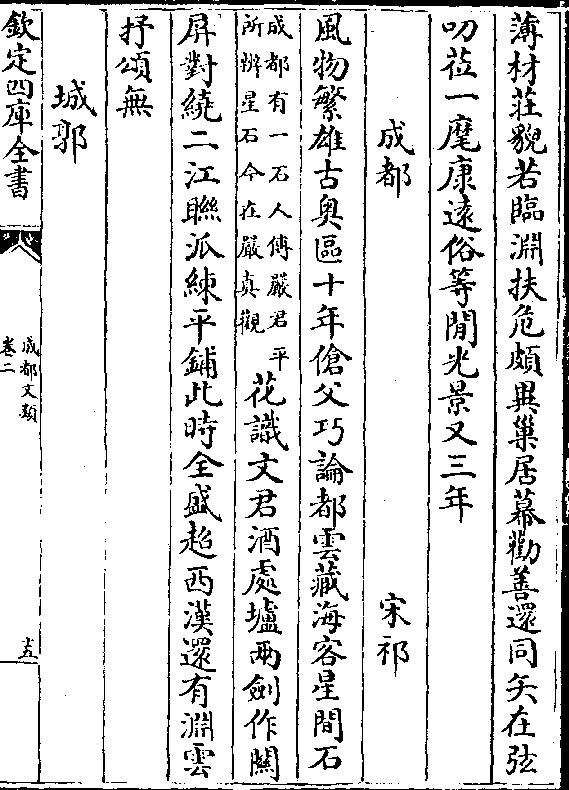 薄材莊貌若臨淵扶危頗異巢居幕勸善還同矢在弦
叨莅一麾康遠俗等閒光景又三年
成都　宋祁
風物繁雄古奥區十年傖父巧論都雲藏海客星間石
成都有一石人傅嚴君平
所辨星石今在嚴真觀
花識文君酒處壚兩劍作關
屏對繞二江聮派練平鋪此時全盛超西漢還有淵雲
抒頌無
城郭
欽定四庫全書
成都文類
卷二
十五